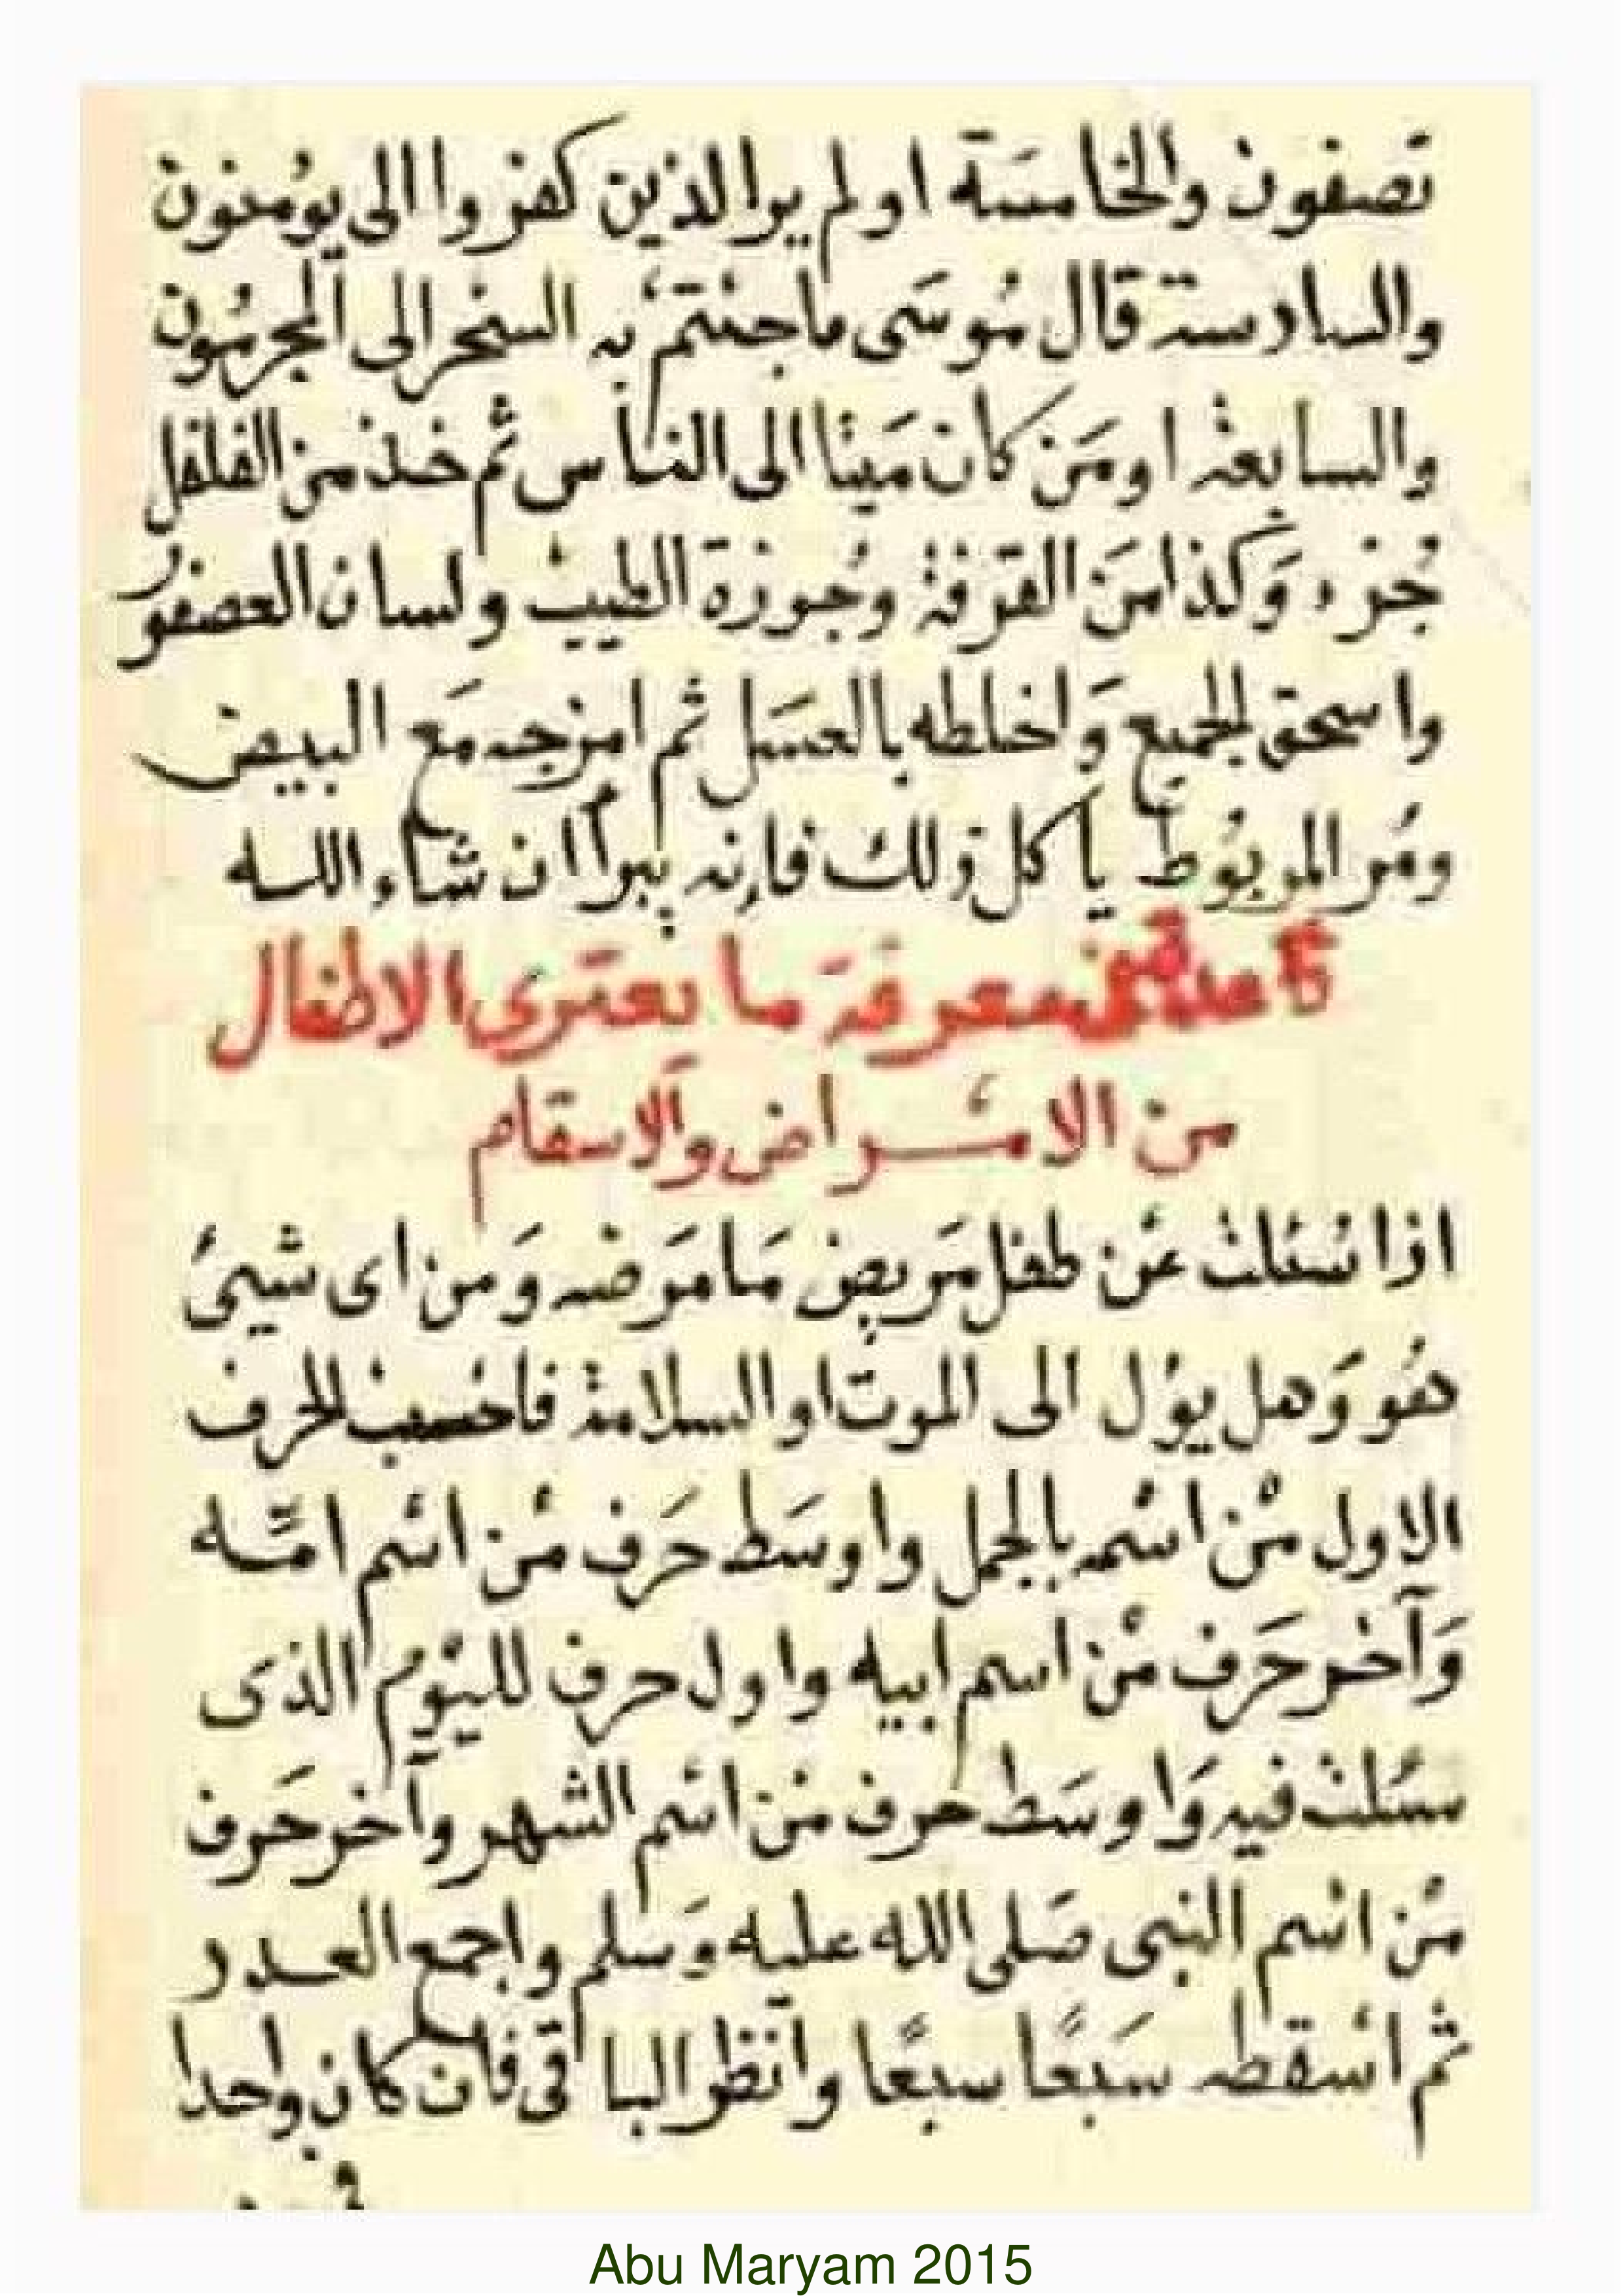 تصفون والخامسة اولم يرا الذين كفروا الى يؤمنون
والسادسة قال مُوسَى ما جئتم به السحر الى المجرمُون
والسابعة اومَن كان مَيتا الى الناس ثم خذ من الفلفل
جُزء وَكذا مَن القرفة وجُوزة الطيب ولسان العصفور
واسحق الجميع وَاخلطه بالعسَل ثم امزجه مَع البيض
ومُر المربُوط ياكل ذلك فإنه يبرأ ان شاء الله
قاعدة في معرفة مَا يعتَرى الاطفال
من الامراض والاسقام
اذا سُئلت عَن طفل مَريض مَا مَرَضه وَمن اى شيئ
هُو وَهل يؤل الى الموت او السلامة فاحسب الحرف
الاول مْن اسْمه بالجمل واوسَط حَرف مْن اسْم امّه
وَآخر حَرف مْن اسم ابيه واول حرف لليَوم الذى
سئلت فيه وَاوسَط حرف من اسْم الشهر وآخر حَرف
مْن اسْم النبى صَلى الله عليه وَسَلم واجمع العدد
ثم اسْقطه سَبعًا سبعًا وانظر الباقى فان كان واحدا
Abu Maryam 2015